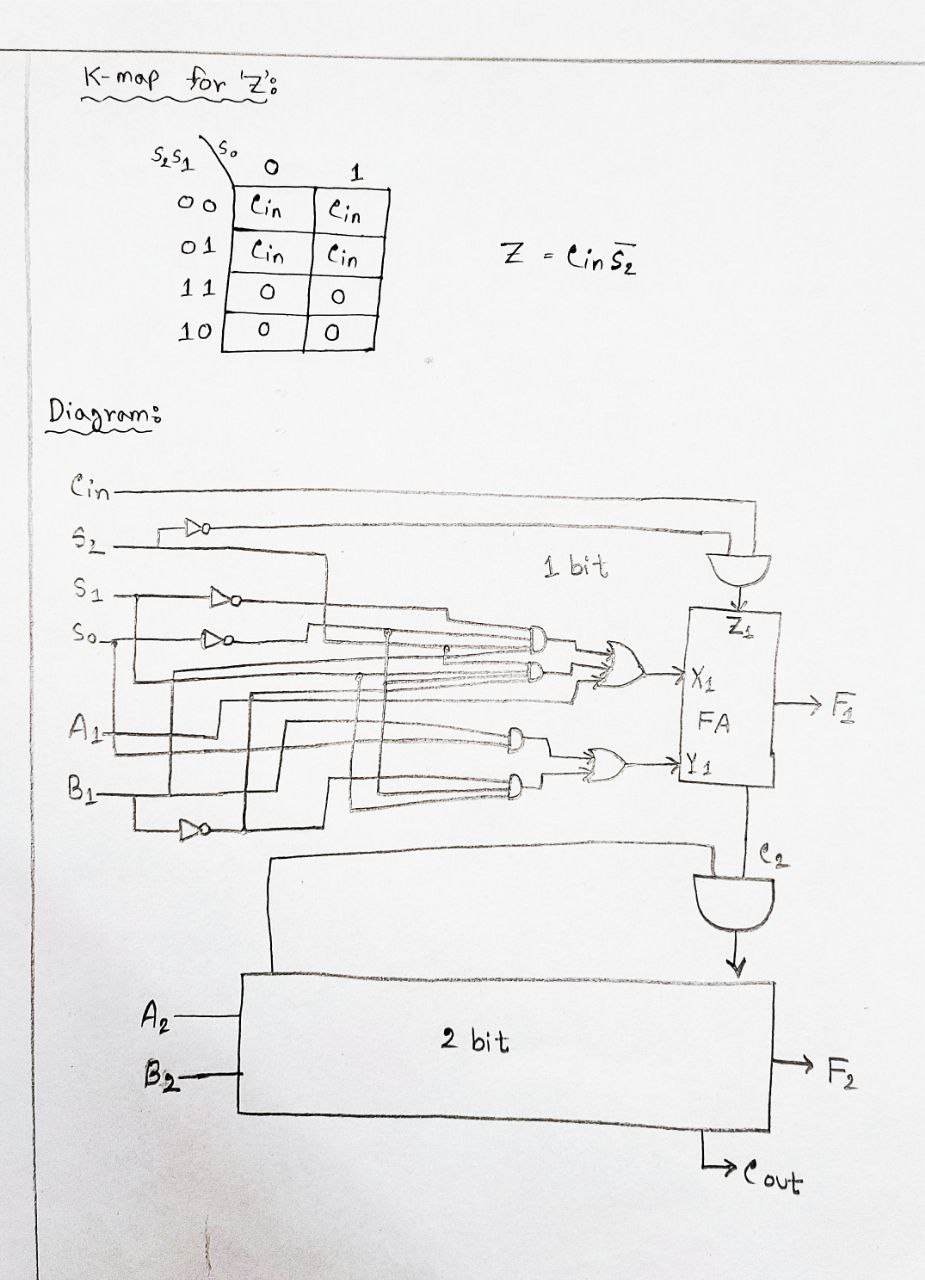 K-map for 'Z':
S2S1 \ S0 0 1
00 Cin Cin
01 Cin Cin
11 0 0
10 0 0
Z = Cin S̅2
Diagram:
Cin
S2
1 bit
S1
S0
Z1
X1
F1
FA
A1
Y1
B1
C2
A2
2 bit
B2
F2
Cout